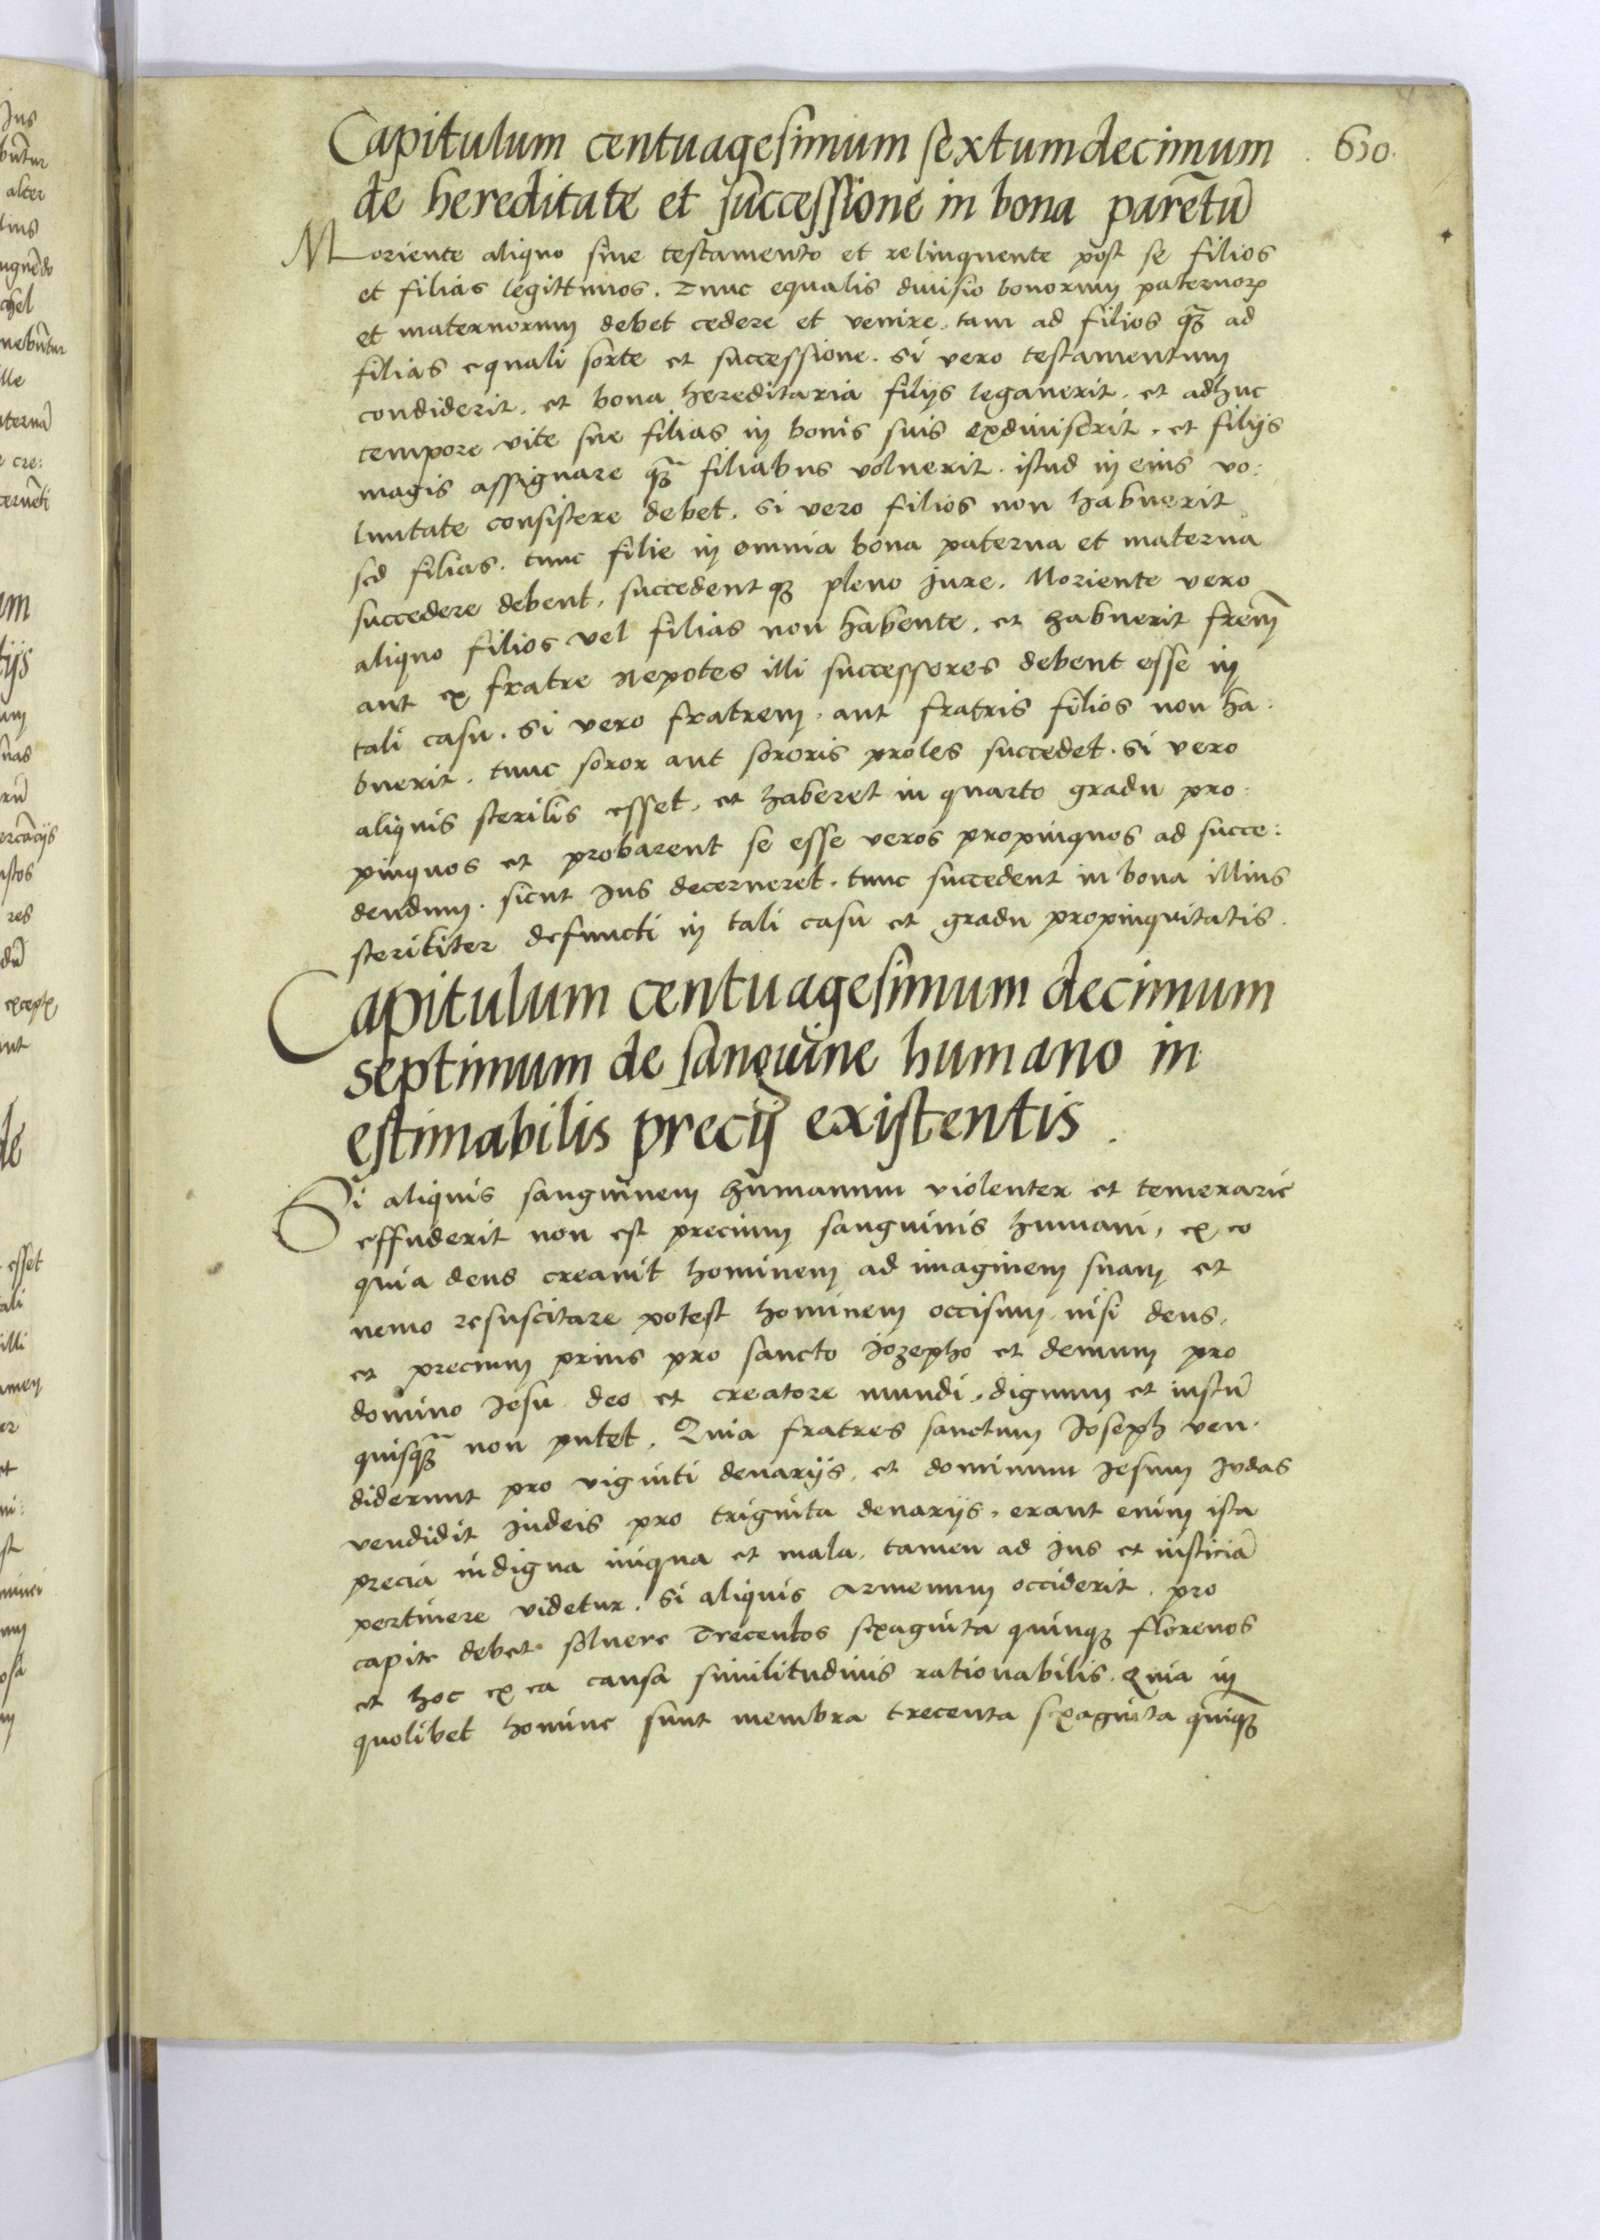 Capitulum centuagesimum sextumdecimum 630.
de hereditate et successione in bona parētū
Moriente aliquo sine testamento et relinquente post se filios
et filias legittimos. Tunc equalis diuisio bonorum paternorꝝ
et maternorum debet cedere et venire, tam ad filios qꝫ̄ ad
filias equali sorte et successione. si vero testamentum
condiderit, et bona hereditaria filijs legauerit, et adhuc
tempore vite sue filias in bonis suis exdiuiserit, et filijs
magis assignare qꝫ̄ filiabus voluerit. istud in eius vo:
luntate consistere debet. si vero filios non habuerit
sed filias. tunc filie in omnia bona paterna et materna
succedere debent, succedentqꝫ pleno jure. Moriente vero
aliquo filios vel filias non habente, et habuerit frēm
aut ex fratre nepotes illi successores debent esse in
tali casu. si vero fratrem, aut fratris filios non ha:
buerit. tunc soror aut sororis proles succedet. si vero
aliquis sterilis esset, et haberet in quarto gradu pro:
pinquos et probarent se esse veros propinquos ad succe:
dendum. sicut Jus decerneret. tunc succedent in bona illius
steriliter defuncti in tali casu et gradu propinquitatis.
Capitulum centuagesimum decimum
septimum de sanguine humano in
estimabilis precij existentis.
Si aliquis sanguinem humanum violenter et temerarie
effuderit non est precium sanguinis humani, ex eo
quia deus creauit hominem ad imaginem suam et
nemo resuscitare potest hominem occisum, nisi deus,
et precium prius pro sancto Jozepho et demum pro
domino Jesu deo et creatore mundi, dignum et iustū
quisqꝫ̄ non putet. Quia fratres sanctum Joseph ven:
diderunt pro viginti denarijs, et dominum Jesum Judas
vendidit Judeis pro triginta denarijs, erant enim ista
precia indigna iniqua et mala, tamen ad Jus et iusticiā
pertinere videtur. si aliquis armenum occiderit. pro
capite debet soluere Trecentos sexaginta quinqꝫ florenos
et hoc ex ea causa similitudinis rationabilis. Quia in
quolibet homine sunt membra trecenta sexaginta quīqꝫ